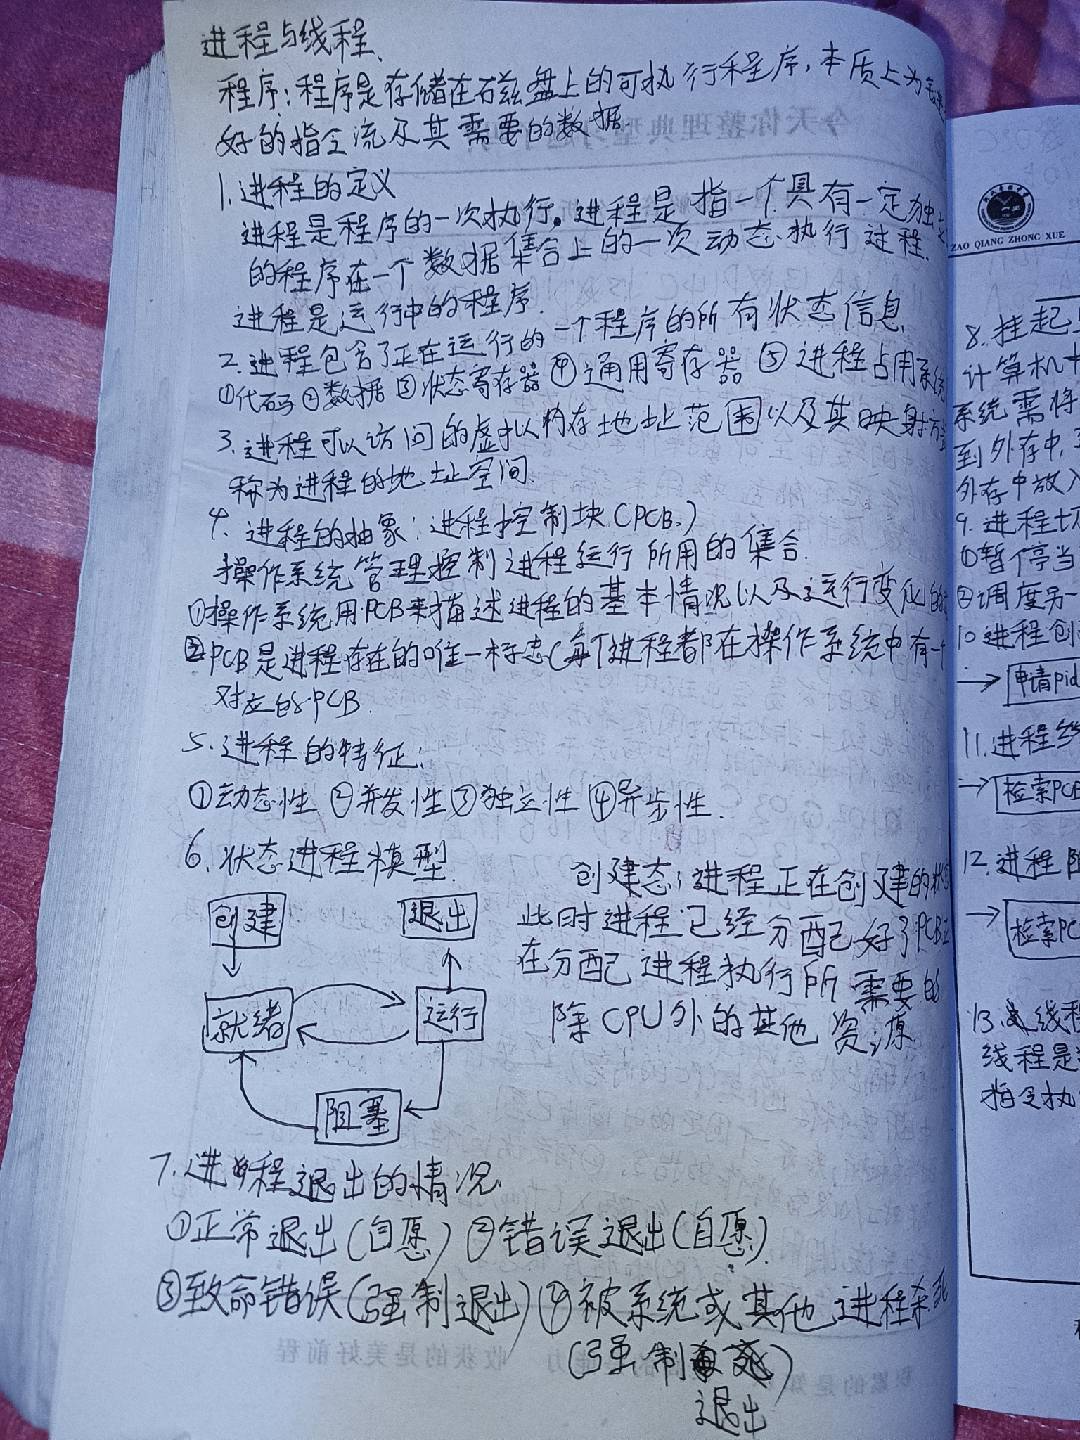 进程与线程.
程序:程序是存储在石兹盘上的可执行程序,本质上为
好的指令流及其需要的数据
1.进程的定义
进程是程序的一次执行。进程是指一个具有一定独立
的程序在一个数据集合上的一次动态执行过程.
进程是运行中的程序.
2.进程包含了正在运行的一个程序的所有状态信息
①代码②数据③状态寄存器④通用寄存器⑤进程占用系统
3.进程可以访问的虚拟内存地址范围以及其映射方
称为进程的地址空间.
4.进程的抽象:进程控制块(PCB.)
操作系统管理控制进程运行所用的集合.
①操作系统用PCB来描述进程的基本情况以及运行变化的
②PCB是进程存在的唯一标志(每个进程都在操作系统中有一个
对应的PCB
5.进程的特征:
①动态性②并发性③独立性④异步性.
6.状态进程模型
创建
退出
就绪
运行
阻塞
创建态:进程正在创建的状
此时进程已经分配好了PCB正
在分配进程执行所需要的
除CPU外的其他资源
7.进程退出的情况.
①正常退出(自愿)②错误退出(自愿).
③致命错误(强制退出)④被系统或其他进程杀死
(强制)
退出
ZAO QIANG ZHONG XUE
8.挂起
计算机
系统需将
到外存中,
外存中放入
9.进程切
①暂停当
②调度另一
10进程创
→申请pid
11.进程
→检索PCB
12.进程阻
→检索PC
13.线程
线程是
指令执